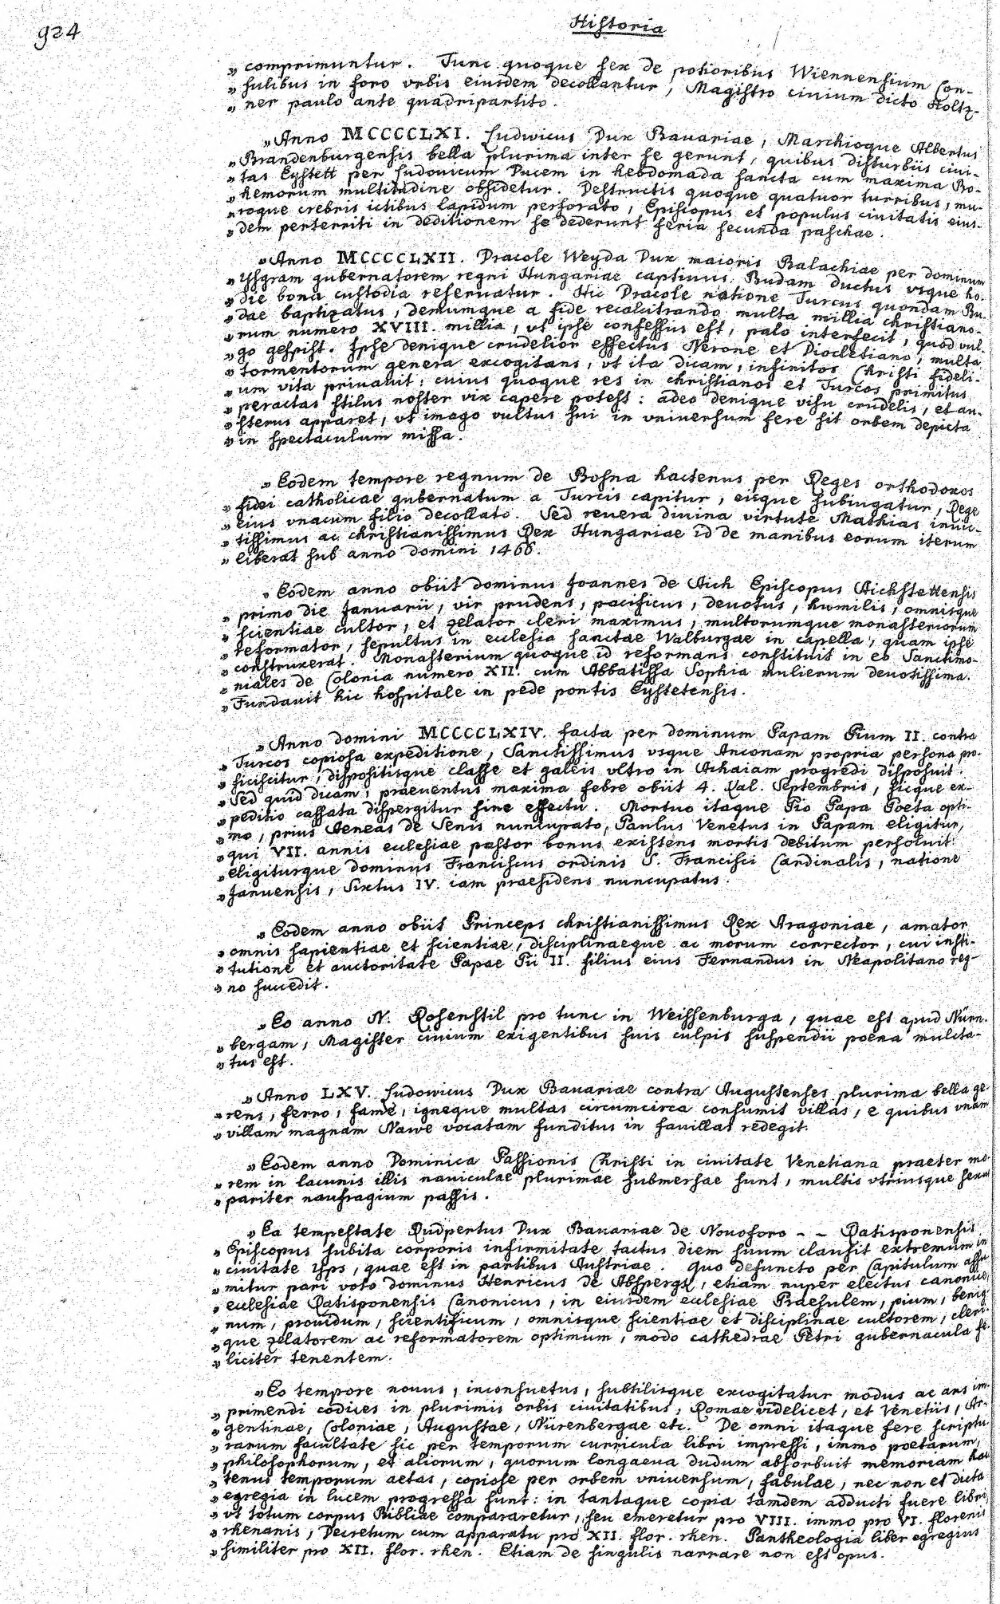 924
Historia
„ comprimuntur. Tunc quoque sex de potioribus Wiennensium Con-
„ sulibus in foro vrbis eiusdem decollantur, Magistro ciuium dicto Holtz-
„ ner paulo ante quadripartito.
„ Anno MCCCCLXI. Ludwicus Dux Bauariae, Marchioque Albertus
„ Brandenburgensis bella plurima inter se gerunt, quibus disturbiis ciui-
„ tas Eystett per Ludouicum Ducem in hebdomada sancta cum maxima Bo-
„ hemorum multitudine obsidetur. Destructis quoque quatuor turribus, mu-
„ roque crebris ictibus lapidum perforato, Episcopus et populus ciuitatis eius-
„ dem perterriti in deditionem se dederunt feria secunda paschae.
„ Anno MCCCCLXII. Dracole Weyda Dux maioris Balachiae per dominum
„ Ysgram gubernatorem regni Hungariae captiuus, Budam ductus vsque ho-
„ die bona custodia reseruatur. Hic Dracole natione Turcus quondam Bu-
„ dae baptizatus, demumque a fide recalcitrando multa millia christiano-
„ rum numero XVIII. millia, vt ipse confessus est, palo interfecit, quod vul-
„ go gespist. Ipse denique crudelior effectus Nerone et Diocletiano, multa
„ tormentorum genera excogitans, vt ita dicam, infinitos Christi fideli-
„ um vita priuauit; cuius quoque res in christianos et Turcos primitus
„ peractas stilus noster vix capere potest: adeo denique visu crudelis, et au-
„ sterus apparet, vt imago vultus sui in vniuersum fere sit orbem depicta
„ in spectaculum missa.
„ Eodem tempore regnum de Bosna hactenus per Reges orthodoxos
„ fidei catholicae gubernatum a Turcis capitur, eisque subiugatur, Rege
„ eius vnacum filio decollato. Sed reuera diuina virtute Mathias inuic-
„ tissimus ac christianissimus Rex Hungariae id de manibus eorum iterum
„ liberat sub anno domini 1466.
„ Eodem anno obiit dominus Joannes de Aich Episcopus Aichstettensis
„ primo die Januarii, vir prudens, pacificus, deuotus, humilis, omnisque
„ scientiae cultor, et zelator cleri maximus, multorumque monasteriorum
„ reformator, sepultus in ecclesia sanctae Walburgae in capella, quam ipse
„ construxerat. Monasterium quoque id reformans constituit in eo Sanctimo-
„ niales de Colonia numero XII. cum Abbatissa Sophia mulierum deuotissima.
„ Fundauit hic hospitale in pede pontis Eystetensis.
„ Anno domini MCCCCLXIV. facta per dominum Papam Pium II. contra
„ Turcos copiosa expeditione, Sanctissimus vsque Anconam propria persona pro-
„ ficiscitur, dispositisque classe et galeis vltro in Achaiam progredi disposuit.
„ Sed quid dicam, praeuentus maxima febre obiit 4. Kal. Septembris, sicque ex-
„ peditio cassata dispergitur sine effectu. Mortuo itaque Pio Papa Poeta opti-
„ mo, prius Aeneas de Senis nuncupato, Paulus Venetus in Papam eligitur,
„ qui VII. annis ecclesiae pastor bonus existens mortis debitum persoluit:
„ eligiturque dominus Franciscus ordinis S. Francisci Cardinalis, natione
„ Januensis, Sixtus IV. iam praesidens nuncupatus.
„ Eodem anno obiit Princeps christianissimus Rex Aragoniae, amator
„ omnis sapientiae et scientiae, disciplinaeque ac morum corrector, cui insti-
„ tutione et auctoritate Papae Pii II. filius eius Fernandus in Neapolitano reg-
„ no succedit.
„ Eo anno N. Rosenstil pro tunc in Weissenburga, quae est apud Nürn-
„ bergam, Magister ciuium exigentibus suis culpis suspendii poena mulcta-
„ tus est.
„ Anno LXV. Ludowicus Dux Bauariae contra Augustenses plurima bella ge
„ rens, ferro, fame, igneque multas circumcirca consumit villas, e quibus vnam
„ villam magnam Nawe vocatam funditus in fauillas redegit.
„ Eodem anno Dominica Passionis Christi in ciuitate Venetiana praeter mo-
„ rem in lacunis illis nauiculae plurimae submersae sunt, multis vtriusque sexus
„ pariter naufragium passis.
„ Ea tempestate Rudpertus Dux Bauariae de Nouoforo - - Ratisponensis
„ Episcopus subita corporis infirmitate tactus diem suum clausit extremum in
„ ciuitate Yps, quae est in partibus Austriae. Quo defuncto per Capitulum assu
„ mitur pari voto dominus Henricus de Absperg, etiam nuper electus canonice,
„ ecclesiae Ratisponensis Canonicus, in eiusdem ecclesiae Praesulem, pium, benig
„ num, prouidum, scientificum, omnisque scientiae et disciplinae cultorem, cleri-
„ que zelatorem ac reformatorem optimum, modo cathedrae Petri gubernacula fe-
„ liciter tenentem.
„ Eo tempore nouus, inconsuetus, subtilisque excogitatur modus ac ars im-
„ primendi codices in plurimis orbis ciuitatibus, Romae videlicet, et Venetiis, Ar-
„ gentinae, Coloniae, Augustae, Nürenbergae etc. De omni itaque fere scriptu-
„ rarum facultate sic per temporum curricula libri impressi, immo poetarum,
„ philosophorum, et aliorum, quorum longaeua dudum absorbuit memoriam hac
„ tenus temporum aetas, copiose per orbem vniuersum, fabulae, nec non et dicta
„ egregia in lucem progressa sunt: in tantaque copia tandem adducti fuere libri,
„ vt totum corpus Bibliae compararetur, seu emeretur pro VIII. immo pro VI. florenis
„ rhenanis, Decretum cum apparatu pro XII. flor. rhen. Pantheologia liber egregius
„ similiter pro XII. flor. rhen. Etiam de singulis narrare non est opus.